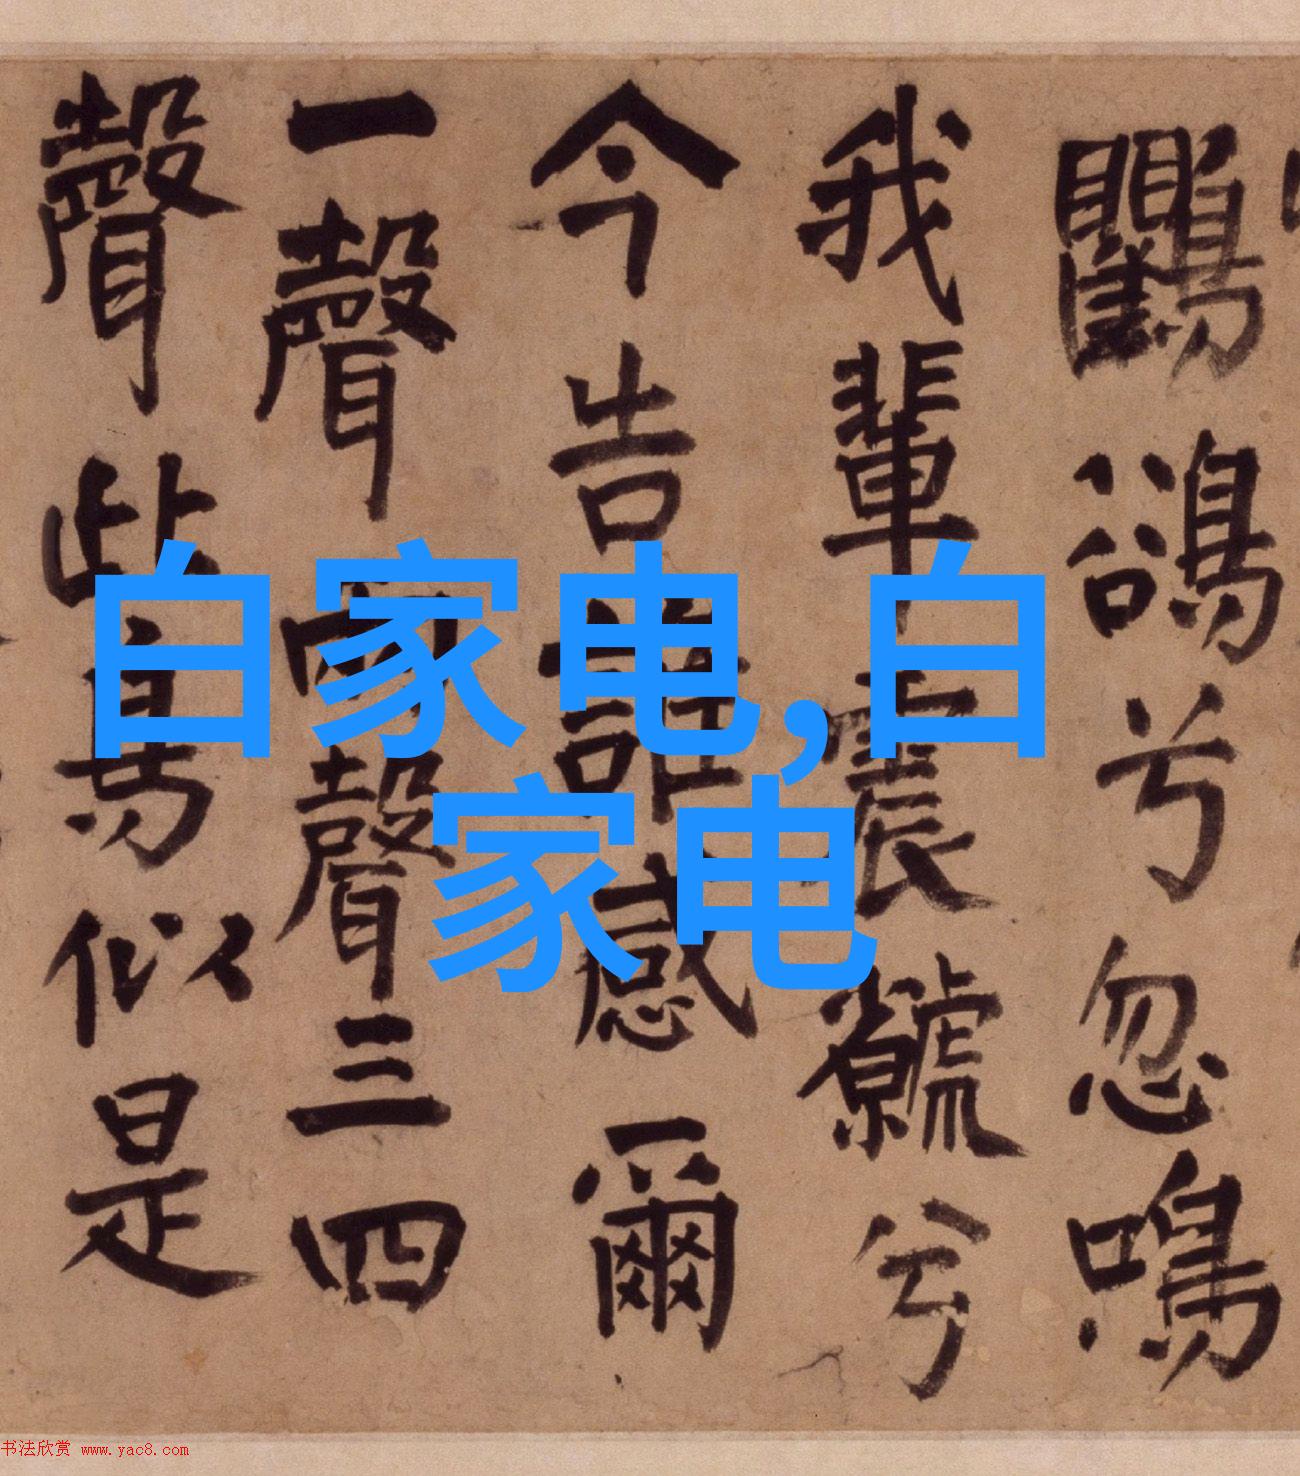 鸜鵒兮忽鳴
我輩兮
今告誰感爾
一聲兩聲三四
聲此鳥似是
白家电,白
家电
书法欣赏 www.yac8.com